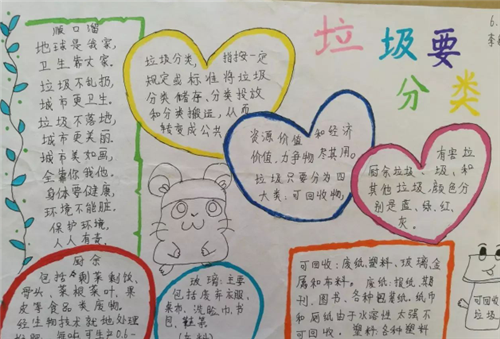 垃圾要
分类
6.
顺口溜
地球是我家,
卫生靠大家.
垃圾不乱扔,
城市更卫生.
垃圾不落地,
城市更美丽.
城市美如画,
全靠你我他.
身体要健康,
环境不能脏.
保护环境,
人人有责.
垃圾分类,指按一定
规定或标准将垃圾
分类储存、分类投放
和分类搬运,从而
转变成公共
资源价值和经济
价值,力争物尽其用。
垃圾只要分为四
大类,可回收物,
厨余垃圾、有害垃
圾、和
其他垃圾,颜色分
别是蓝、绿、红、
灰。
厨余
包括剩菜剩饭、
骨头、菜根菜叶、果
皮等食品类废物.
经生物技术就地处理
0.6-
玻璃:主要
包括废弃衣服、
桌布、洗脸巾、书
包、鞋等
可回收:废纸,塑料,玻璃,金
属和布料。废纸:报纸,期
刊、图书、各种包装纸.纸巾
和厕纸由于水溶性太强不
可回收.塑料:各种塑料
可回收
垃圾